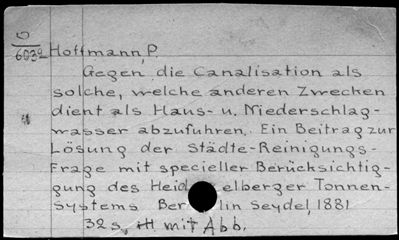 O
6032 Hoffmann, P.
Gegen die Canalisation als
solche, welche anderen Zwecken
dient als Haus- u. Niederschlag-
wasser abzuführen. Ein Beitrag zur
Lösung der Städte-Reinigungs-
Frage mit specieller Berücksichtig-
gung des Heidelberger Tonnen-
systems Berlin Seydel, 1881
32 s. mit Abb.